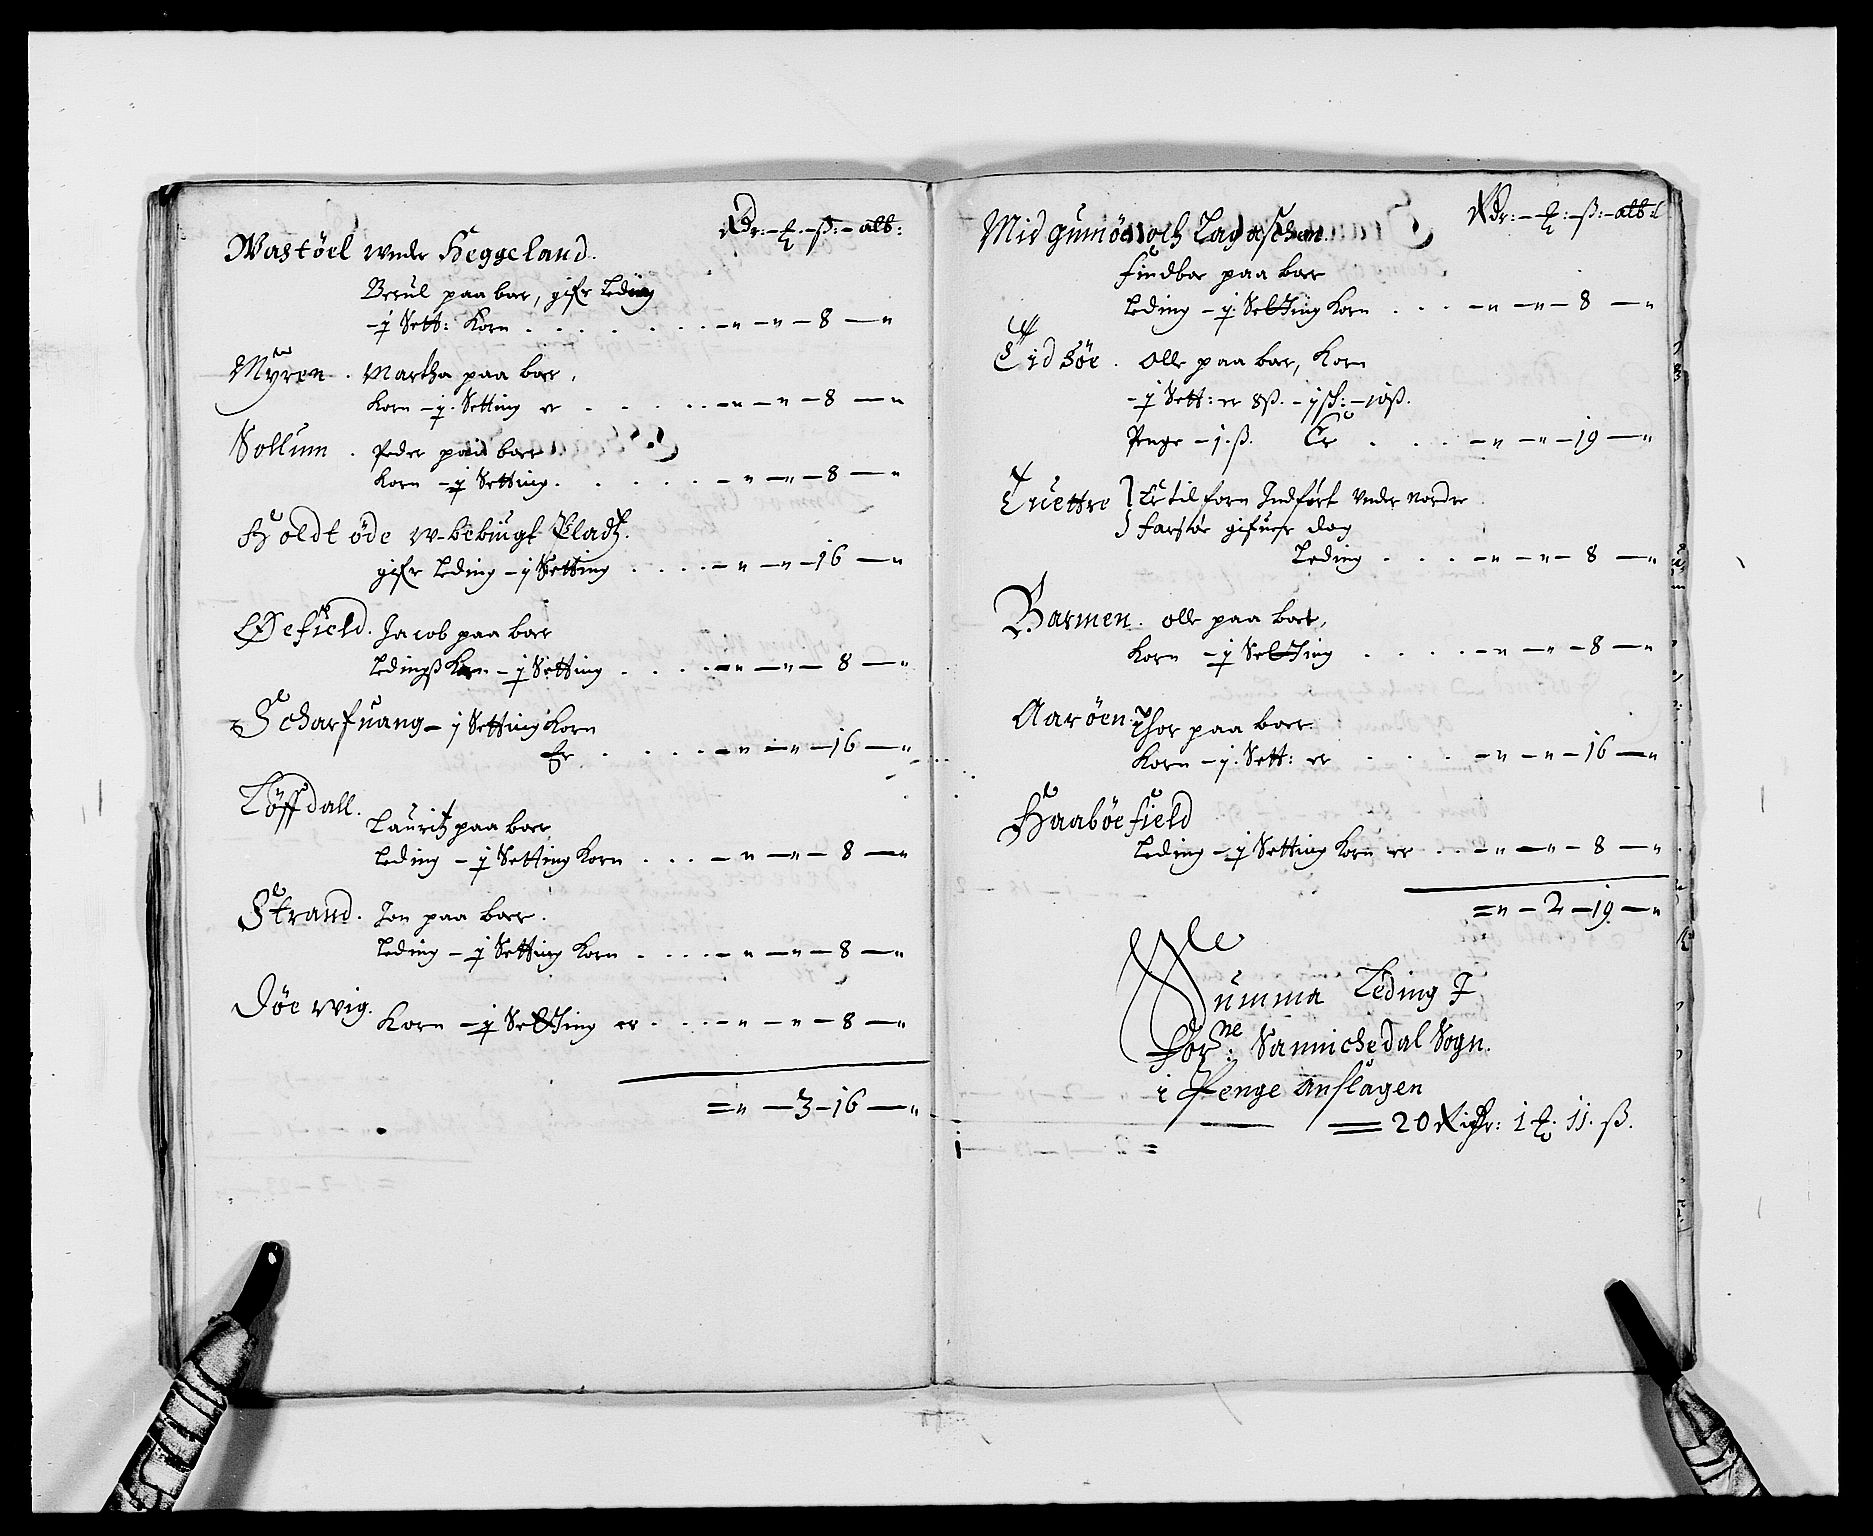 Rdr: – ₰ – ß: – alb:
Wastöel wnder Heggeland.
Berul paa boer, gifr Leding
– j Sett: Korn . . . . . . – „ – „ – 8 – „
Myren . Martha paa boer,
Korn – j. Setting er . . . . – „ – „ – 8 – „
Sollum . Peder paa boer
Korn – j Setting . . . . . – „ – „ – 8 – „
Holdt öde w-bebiugt Pladtz.
gifr Leding – j Setting . . . . – „ – „ – 16 – „
Øefield . Jacob paa boer
Ledingß Korn – j Setting . . . . – „ – „ – 8 – „
Scharfuang – j Setting Korn
Er . . . . . – „ – „ – 16 – „
Löffdall.
Lauritz paa boer,
Leding – j Setting Korn . . . – „ – „ – 8 – „
Strand . Jon paa boer .
Leding – j Setting Korn . . . . – „ – „ – 8 – „
Döe wig. Korn – j Setting er . . . – „ – „ – 8 – „
= „ – 3 – 16 – „
Rdr: – ₰ – ß: – alb:
Midgumöen och
Findboe paa boer
Leding – j. Setting Korn . . . – „ – „ – 8 – „
Eidsöe . Olle paa boer, Korn
– j Sett: er 8ß. – j sk: – 10ß.
Penge – 1. ß. Er . . . . – „ – „ – 19 – „
Tuettre } Er til forn Indfört Vnder Nordre
} Farsiöe gifuer dog
Leding . . . . – „ – „ – 8 – „
Barmen . Olle paa boer,
Korn – j Setting . . . . – „ – „ – 8 – „
Aaröen. Thor paa boer.
Korn – j. Sett: er . . . . – „ – „ – 16 – „
Haaböefield
Leding – j Setting Korn er . . – „ – „ – 8 – „
= „ – 2 – 19 – „
Summa Leding J
For:ne Sannichedal Sogn.
i Penge Anslagen
= 20 Rixdr: 1 ₰ 11. ß.